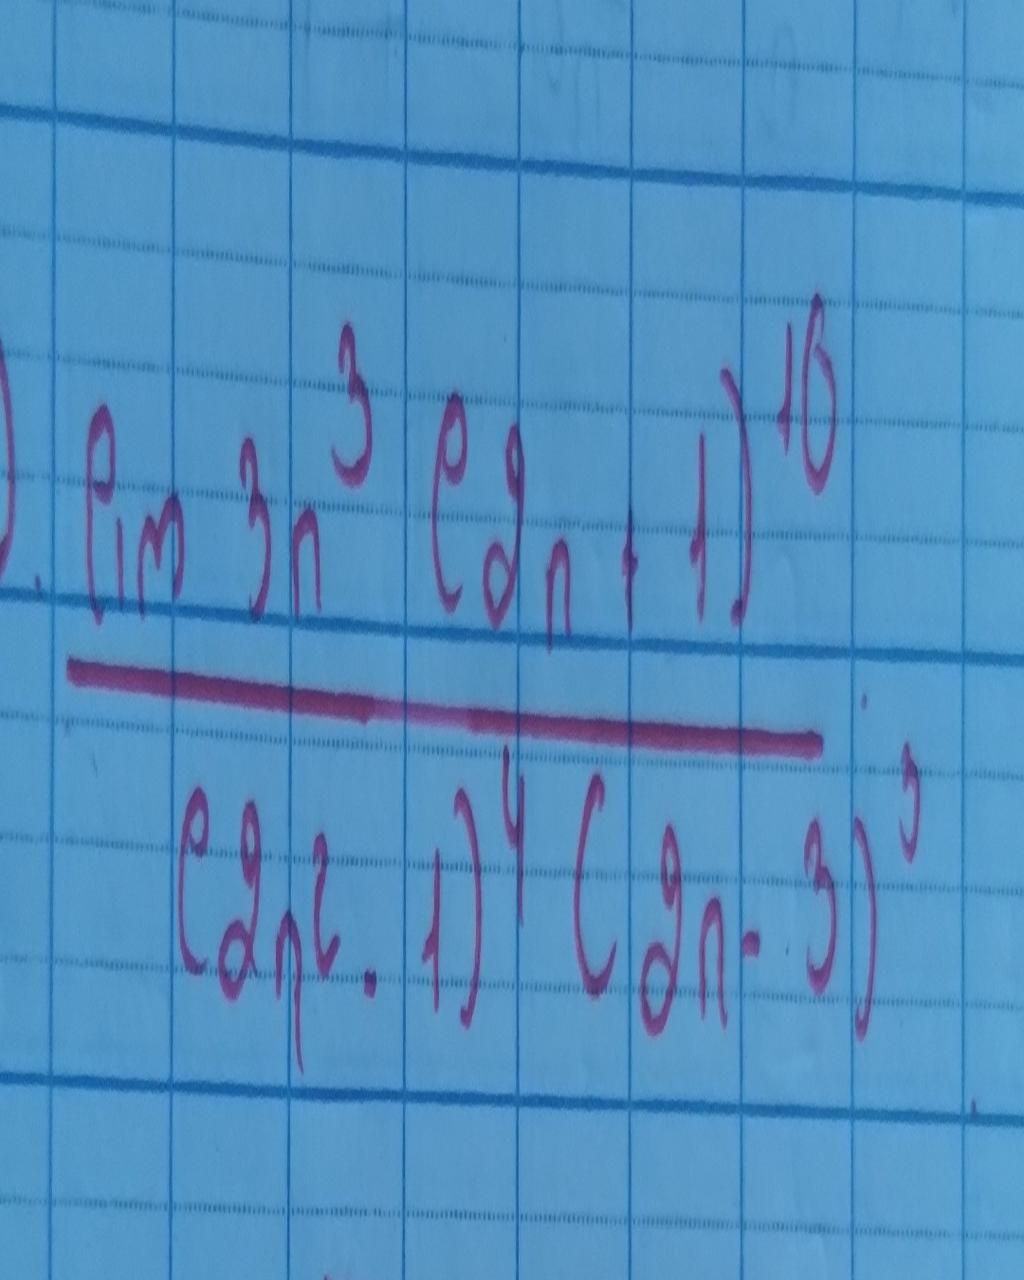 ). lim 3n³ (2n + 1)¹⁰
(2n² - 1)⁴ (2n - 3)³